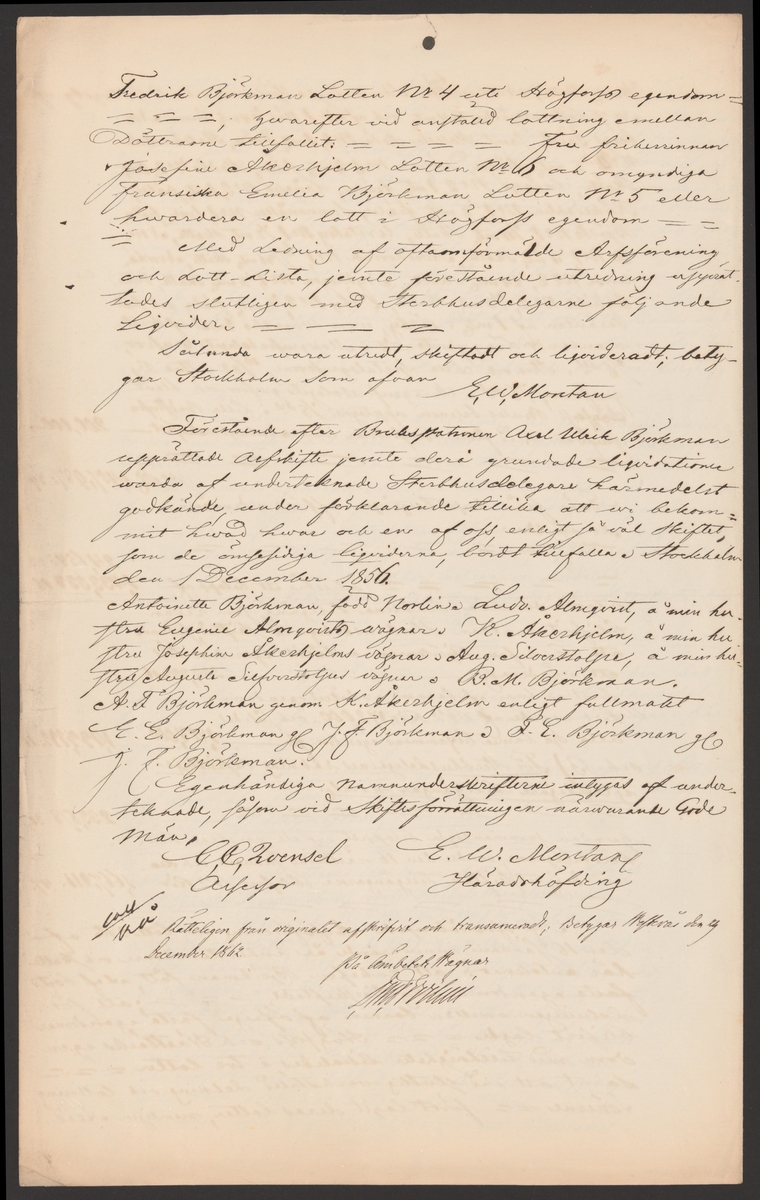 Fredrik Björkman Lotten No 4 uti Högforss egendom =
= = = ; hwarefter vid anstäld lottning emellan
Döttrarne tillfallit: = = = = Fru friherrinnan
Josefine Åkerhjelm Lotten No 6 och omyndiga
Fransiska Emelia Björkman Lotten No 5 eller
hwardera en lott i Högforss egendom = =
=
Med Ledning af oftaomförmälde Arfsförening
och Lott-Lista, jemte förestående utredning upprät-
tades slutligen med Sterbhusdelegarne följande
Liqvider. = = =
Sålunda wara utredt, skiftadt och liqvideradt; bety-
gar Stockholm som ofvan
E. W. Montan
Förestående efter Brukspatronen Axel Ulrik Björkman
upprättade Arfskifte jemte derå grundade liqvidationer
warda af undertecknade Sterbhusdelegare härmedelst
godkände, under förklarande tillika att wi bekom=
mit hwad hwar och en af oss, enligt så väl Skiftet,
som de ömsesidiga liqviderna, bordt tillfalla. Stockholm
den 1 December 1856.
Antoinette Björkman, född Norlin. Ludv. Almqvist, å min hu-
stru Eugenie Almqvists wägnar. K. Åkerhjelm, å min hu
stru Josephine Åkerhjelms wägnar. Aug. Silverstolpe, å min hu-
stru Augusta Silfverstolpes wägnar. B. M. Björkman.
A. F. Björkman genom K. Åkerhjelm enligt fullmakt
E. E. Björkman gm J. F Björkman. F. E. Björkman gm
J. F. Björkman.
Egenhändiga namnunderskrifterne intygas af under-
tecknade, såsom vid Skiftesförrättningen närwarande Gode
Män,
C. C. Zwensel E. W. Montan
Assessor Häradshöfding
Rätteligen från originalet afskrifvit och transumeradt; Betygar Westerås den 29
December 1862
På Embetets Wägnar